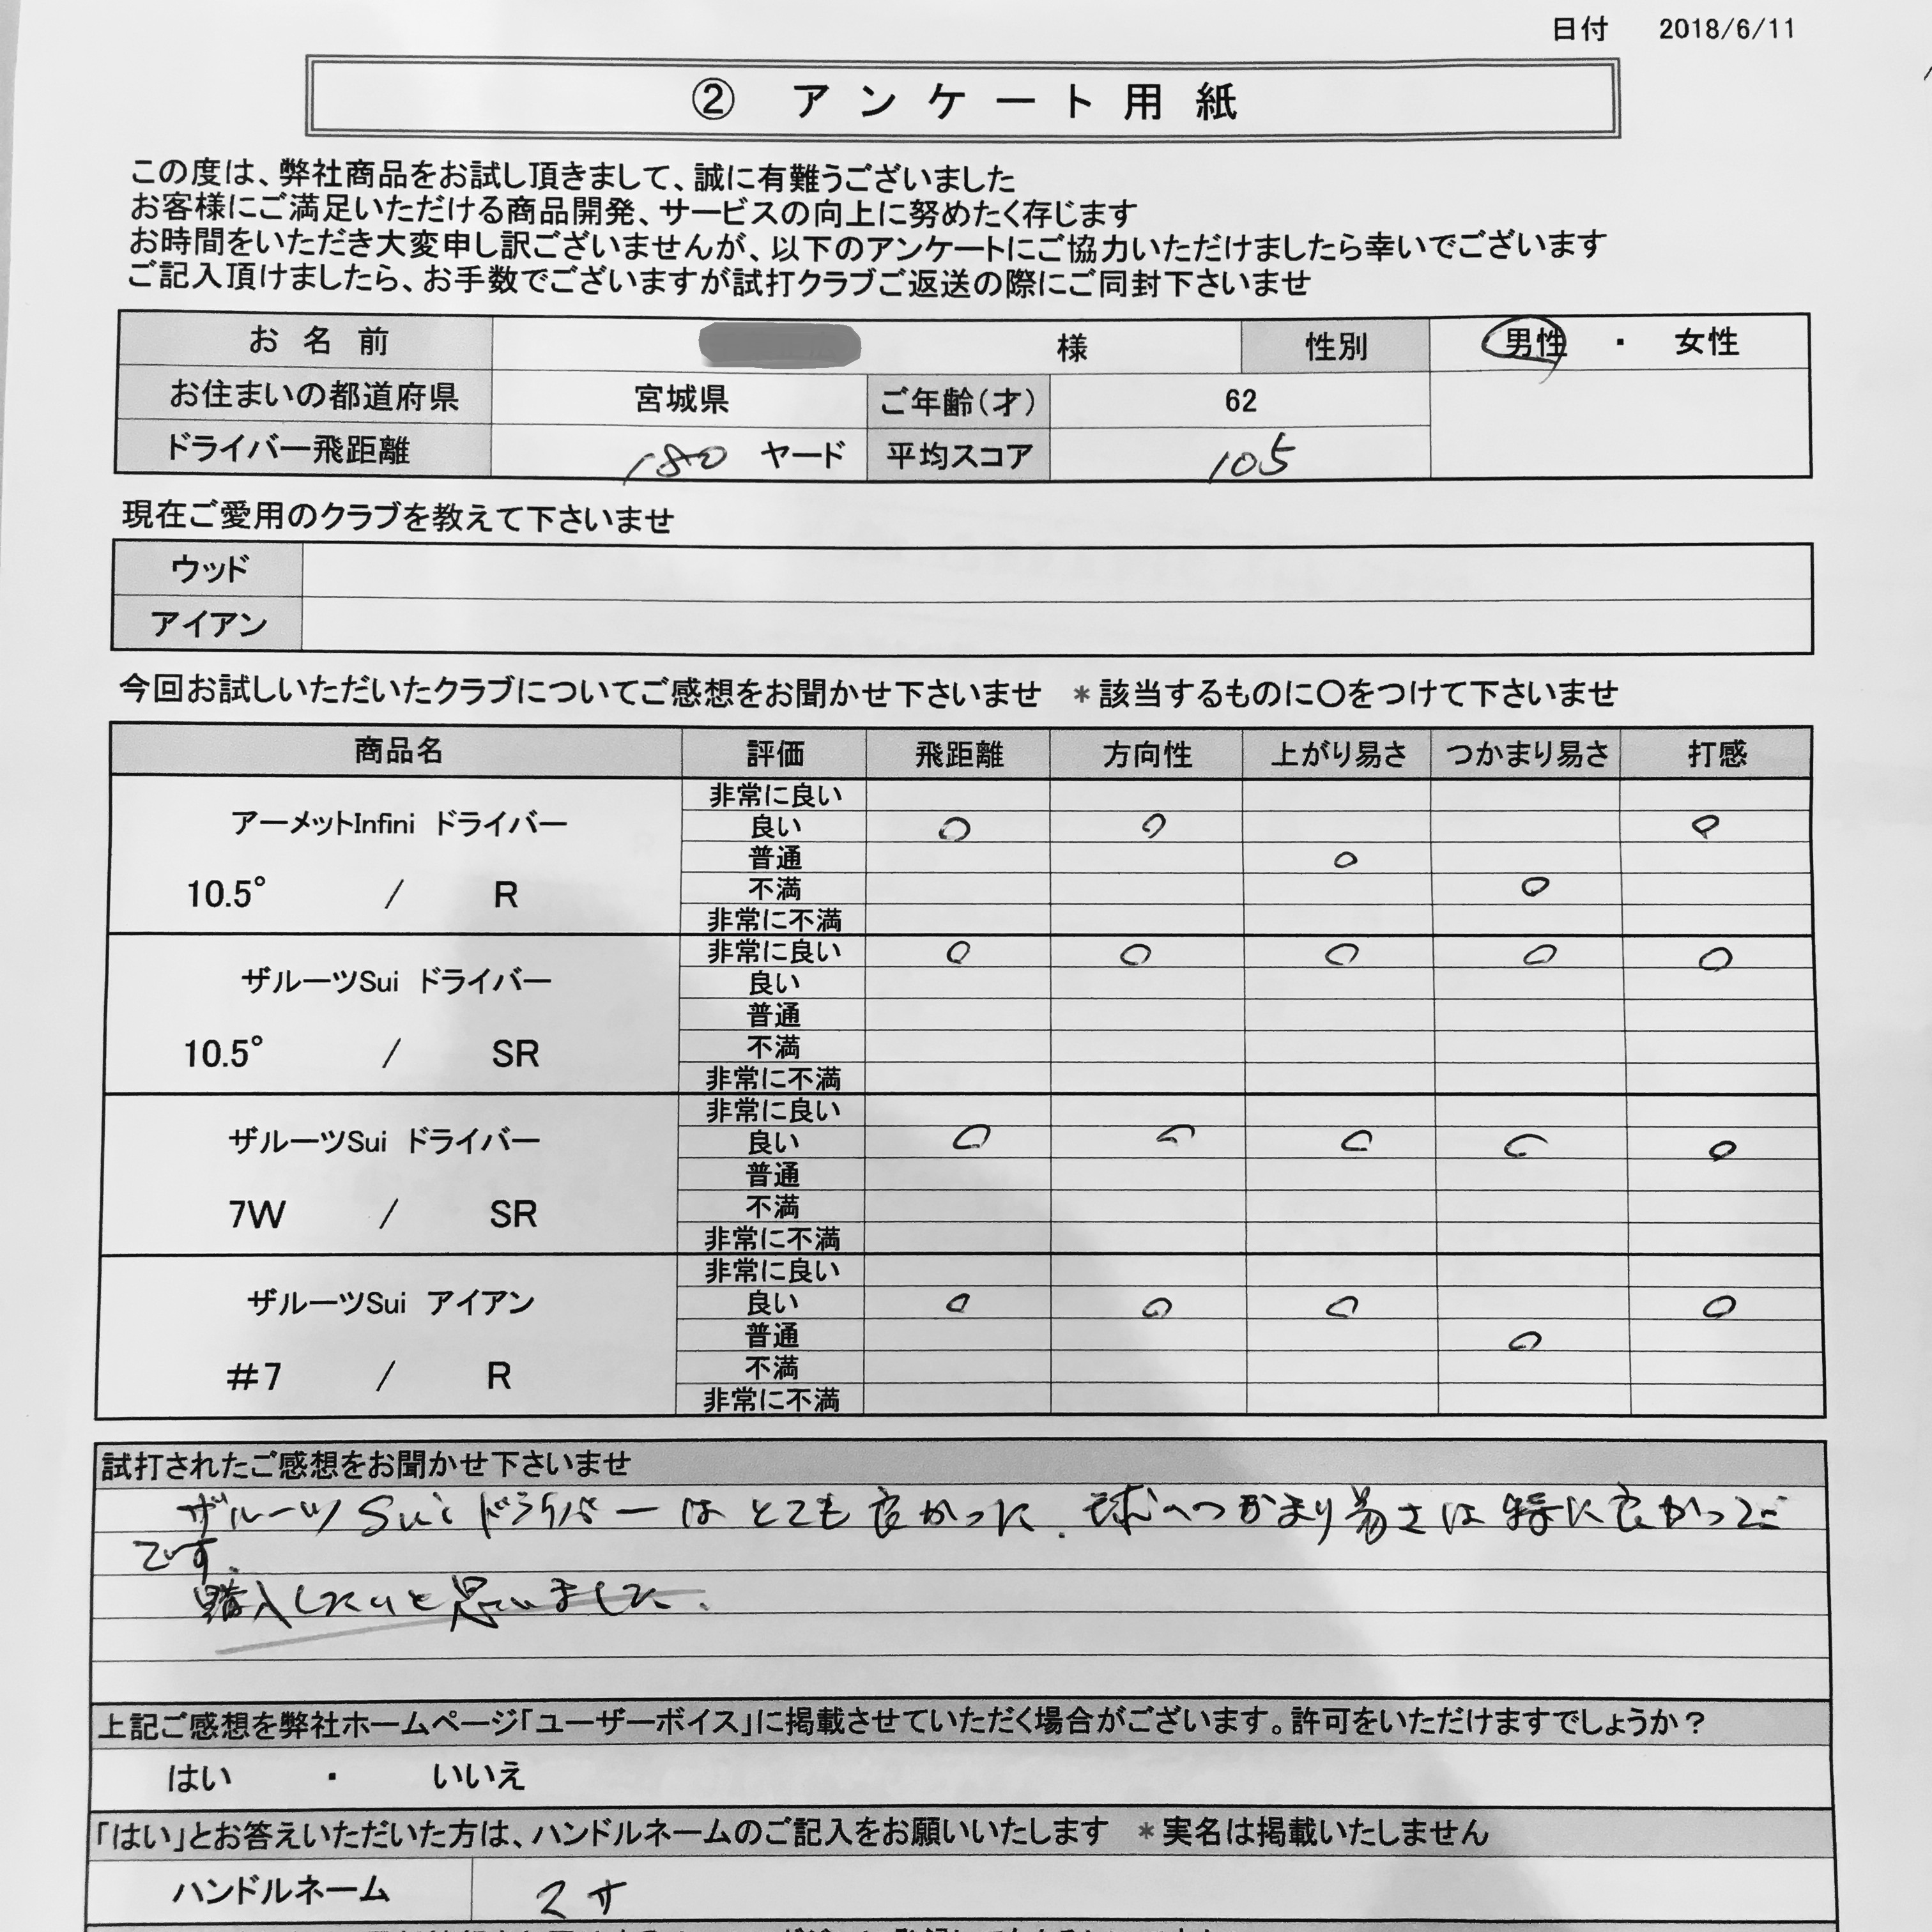 日付 2018/6/11
② アンケート用紙
この度は、弊社商品をお試し頂きまして、誠に有難うございました
お客様にご満足いただける商品開発、サービスの向上に努めたく存じます
お時間をいただき大変申し訳ございませんが、以下のアンケートにご協力いただけましたら幸いでございます
ご記入頂けましたら、お手数でございますが試打クラブご返送の際にご同封下さいませ
お名前 様 性別 男性 ・ 女性
お住まいの都道府県 宮城県 ご年齢(才) 62
ドライバー飛距離 180 ヤード 平均スコア 105
現在ご愛用のクラブを教えて下さいませ
ウッド
アイアン
今回お試しいただいたクラブについてご感想をお聞かせ下さいませ *該当するものに〇をつけて下さいませ
商品名 評価 飛距離 方向性 上がり易さ つかまり易さ 打感
アーメットInfini ドライバー
10.5° / R
非常に良い
良い ○ ○ ○
普通 ○
不満 ○
非常に不満
ザルーツSui ドライバー
10.5° / SR
非常に良い ○ ○ ○ ○ ○
良い
普通
不満
非常に不満
ザルーツSui ドライバー
7W / SR
非常に良い
良い ○ ○ ○ ○ ○
普通
不満
非常に不満
ザルーツSui アイアン
#7 / R
非常に良い
良い ○ ○ ○ ○
普通 ○
不満
非常に不満
試打されたご感想をお聞かせ下さいませ
ザルーツSuiドライバーはとても良かった。球のつかまり易さは特に良かった
です。
購入したいと思いました。
上記ご感想を弊社ホームページ「ユーザーボイス」に掲載させていただく場合がございます。許可をいただけますでしょうか?
はい ・ いいえ
「はい」とお答えいただいた方は、ハンドルネームのご記入をお願いいたします *実名は掲載いたしません
ハンドルネーム